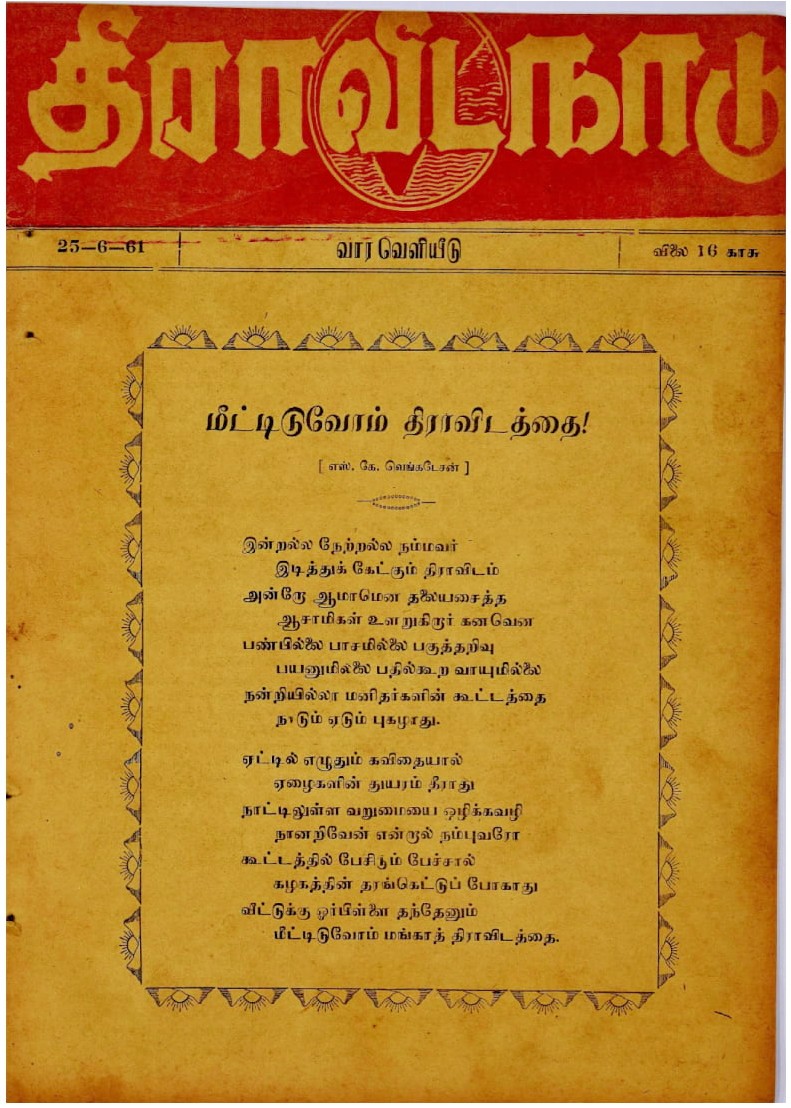 திராவிடநாடு
25—6—61
வார வெளியீடு
விலை 16 காசு
மீட்டிடுவோம் திராவிடத்தை!
[ எஸ். கே. வெங்கடேசன் ]
இன்றல்ல நேற்றல்ல நம்மவர்
இடித்துக் கேட்கும் திராவிடம்
அன்றோ ஆமாமென தலையசைத்த
ஆசாமிகள் உளறுகிறார் கனவென
பண்பில்லை பாசமில்லை பகுத்தறிவு
பயனுமில்லை பதில்கூற வாயுமில்லை
நன்றியில்லா மனிதர்களின் கூட்டத்தை
நாடும் ஏடும் புகழாது.
ஏட்டில் எழுதும் கவிதையால்
ஏழைகளின் துயரம் தீராது
நாட்டிலுள்ள வறுமையை ஒழிக்கவழி
நானறிவேன் என்றால் நம்புவரோ
கூட்டத்தில் பேசிடும் பேச்சால்
கழகத்தின் தரங்கெட்டுப் போகாது
வீட்டுக்கு ஓர்பிள்ளை தந்தேனும்
மீட்டிடுவோம் மங்காத் திராவிடத்தை.